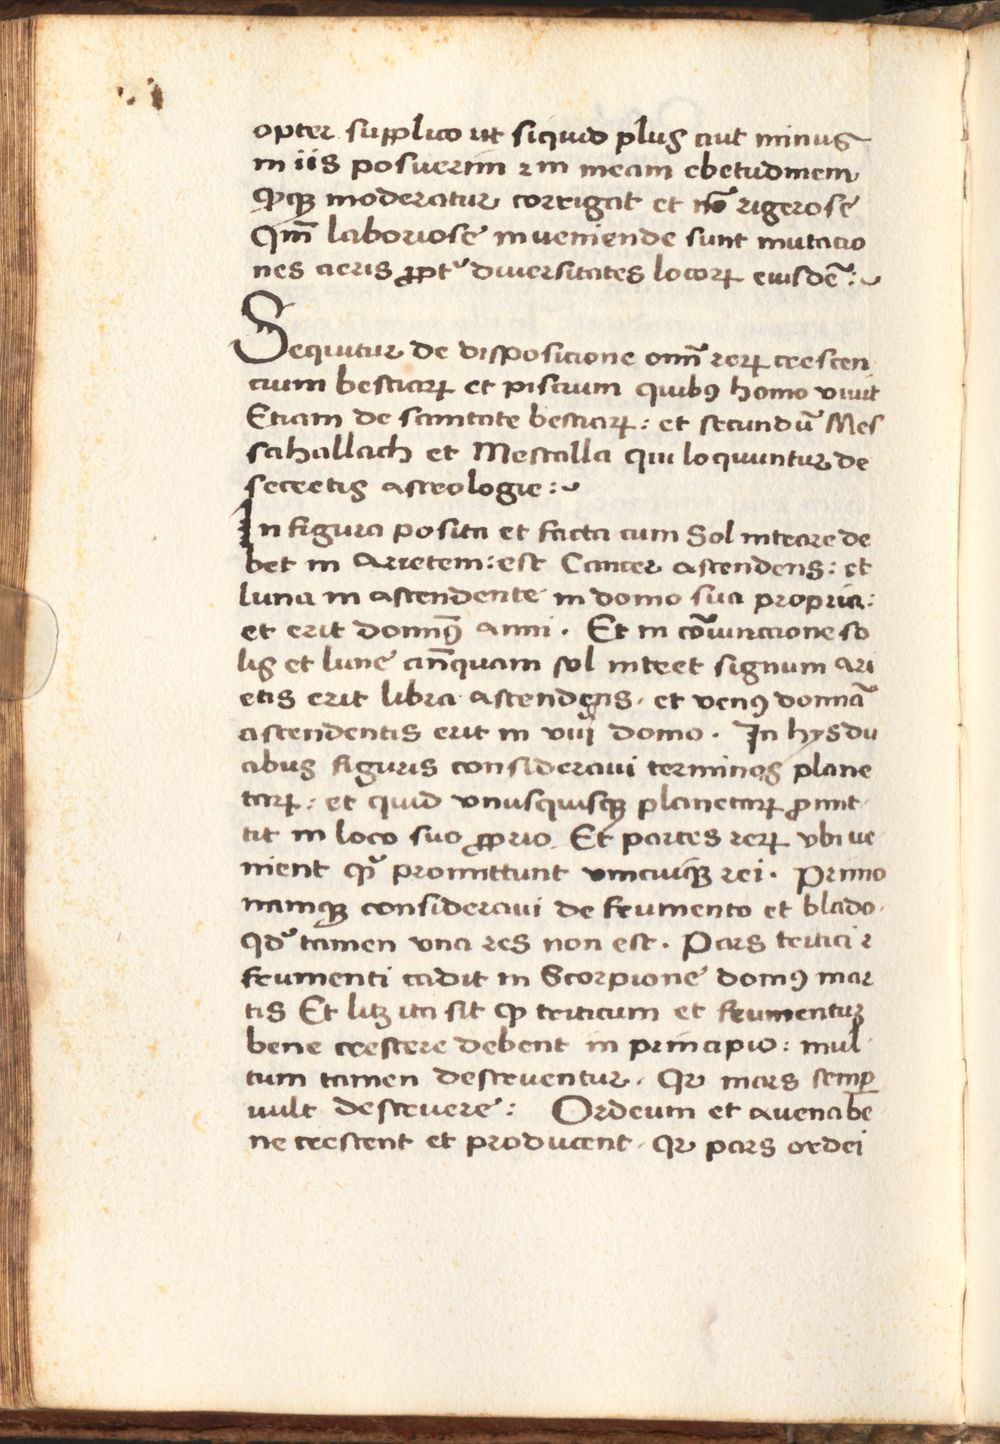 opter supplico ut siquid plus aut minus
in iis posuerim ⁊ in meam ebetudinem
qꝫ moderatur corrigat et nō rigerose
Qm̄ laboriose inveniende sunt mutacio
nes aeris ꝓptʾ diversitates locoꝝ eiusdē :
Sequitur de dispositione om̄ reꝝ crescen
cium bestiaꝝ et piscium quibꝰ homo vivit
Etiam de sanitate bestiaꝝ : et secundū Mes
sahallach et Mescalla qui loquuntur de
secretis astrologie :
In figura posita et facta cum Sol intrare de
bet in Arietem : est Cancer ascendens : et
luna in ascendente in domo sua propria :
et erit domin̄ꝰ anni . Et in cōiunccione so
lis et lune an̄quam sol intret signum Ari
etis erit libra ascendens . et venꝰ domnā
ascendentis erit in viii domo . In hys du
abus figuris consideravi terminos plane
taꝝ : et quid unusquisqꝫ planetaꝝ ꝓmit
tit in loco suo ꝓprio . Et partes reꝝ ubi ve
nient qʾ promittunt unicuiqꝫ rei . Primo
namqꝫ consideravi de frumento et blado .
qdʾ tamen una res non est . Pars tritici ⁊
frumenti cadit in Scorpione domꝰ mar
tis Et licꝫ ita sit ꝙ triticum et frumentum
bene crescere debent in principio : mul
tum tamen destruentur . Qr mars semꝑ
vult destruere : Ordeum et avena be
ne crescent et producent . Qr pars ordei